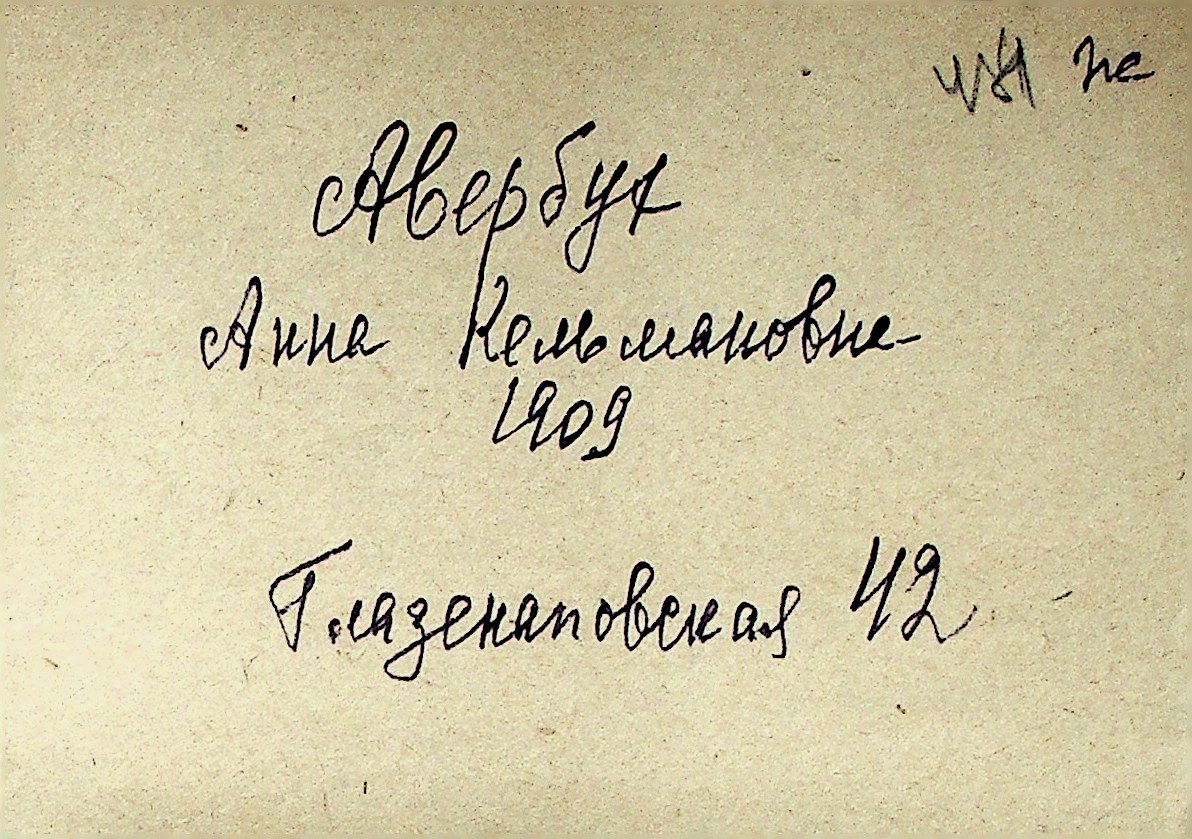 Авербух
Анна Кельмановна
1909
Глазенаповская 42